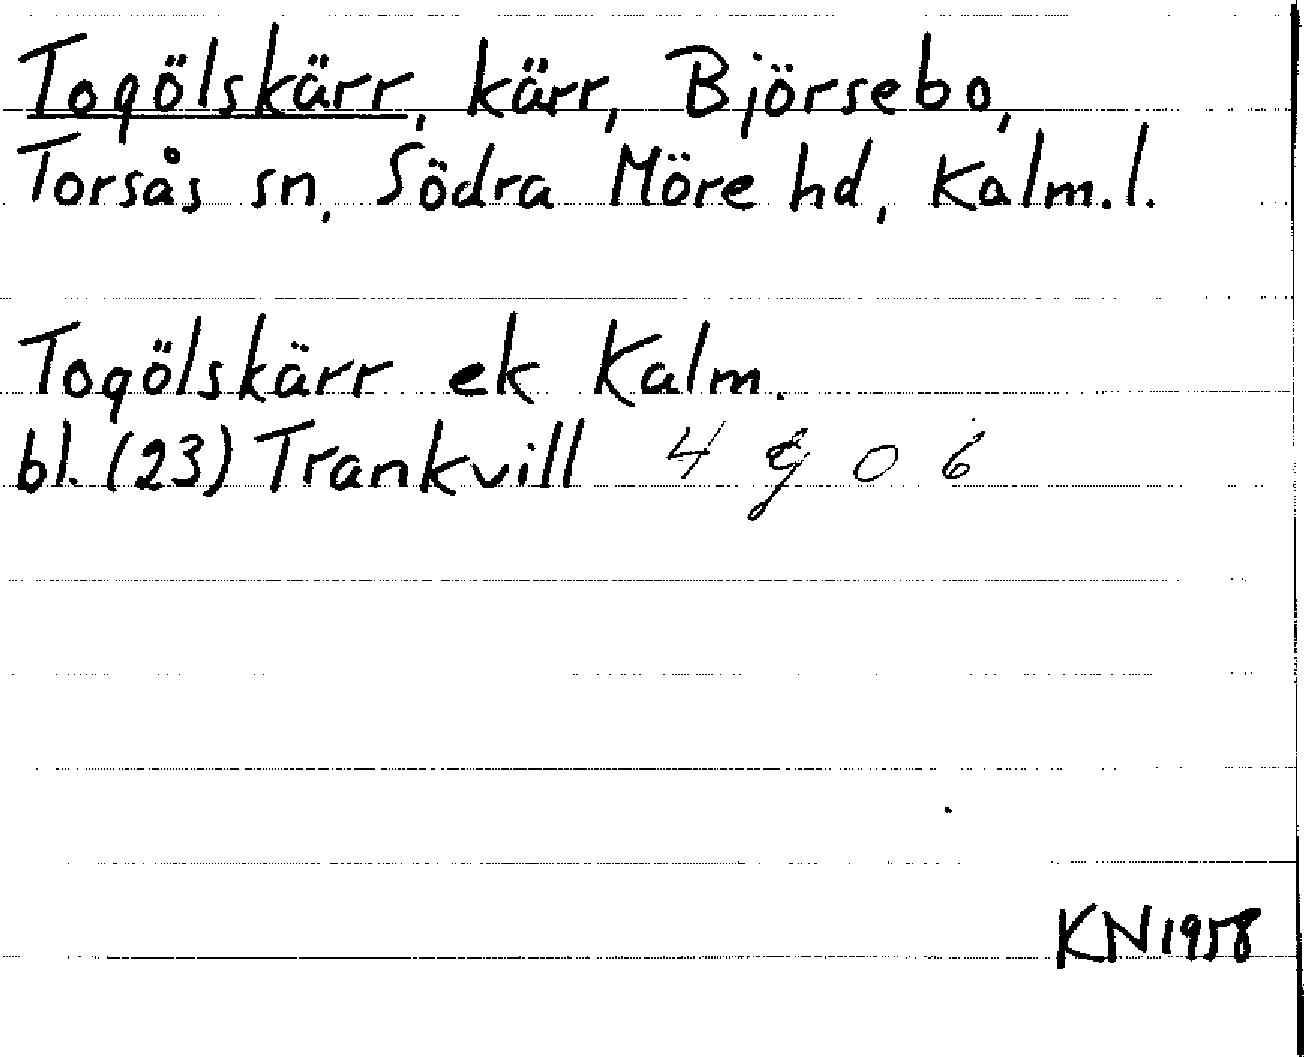 Togölskärr, kärr, Björsebo,
Torsås sn, Södra Möre hd, Kalm. l.
Togölskärr ek Kalm.
bl. (23) Trankvill 4 g 0 6
KN 1958